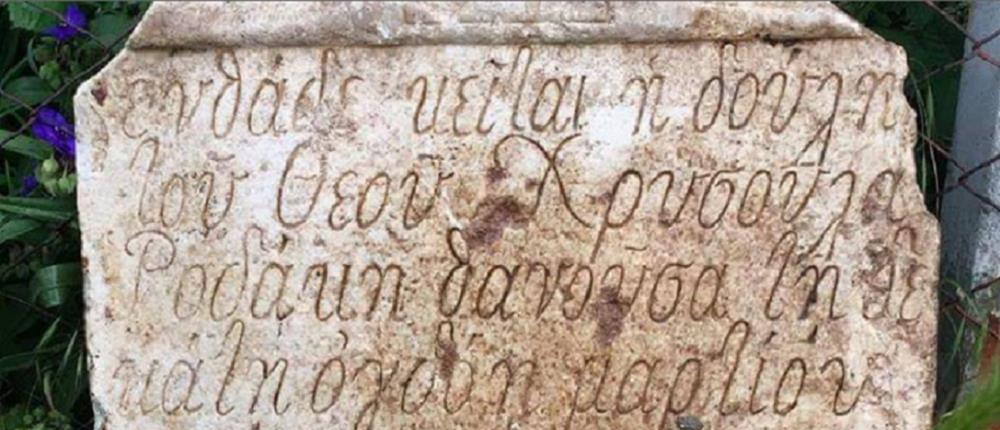 ενθάδε κεῖται ἡ δούλη
τοῦ Θεοῦ Χρυσοῦλα
Ροδάκη θανοῦσα τῇ δε
κάτη ὀγδόη μαρτίου